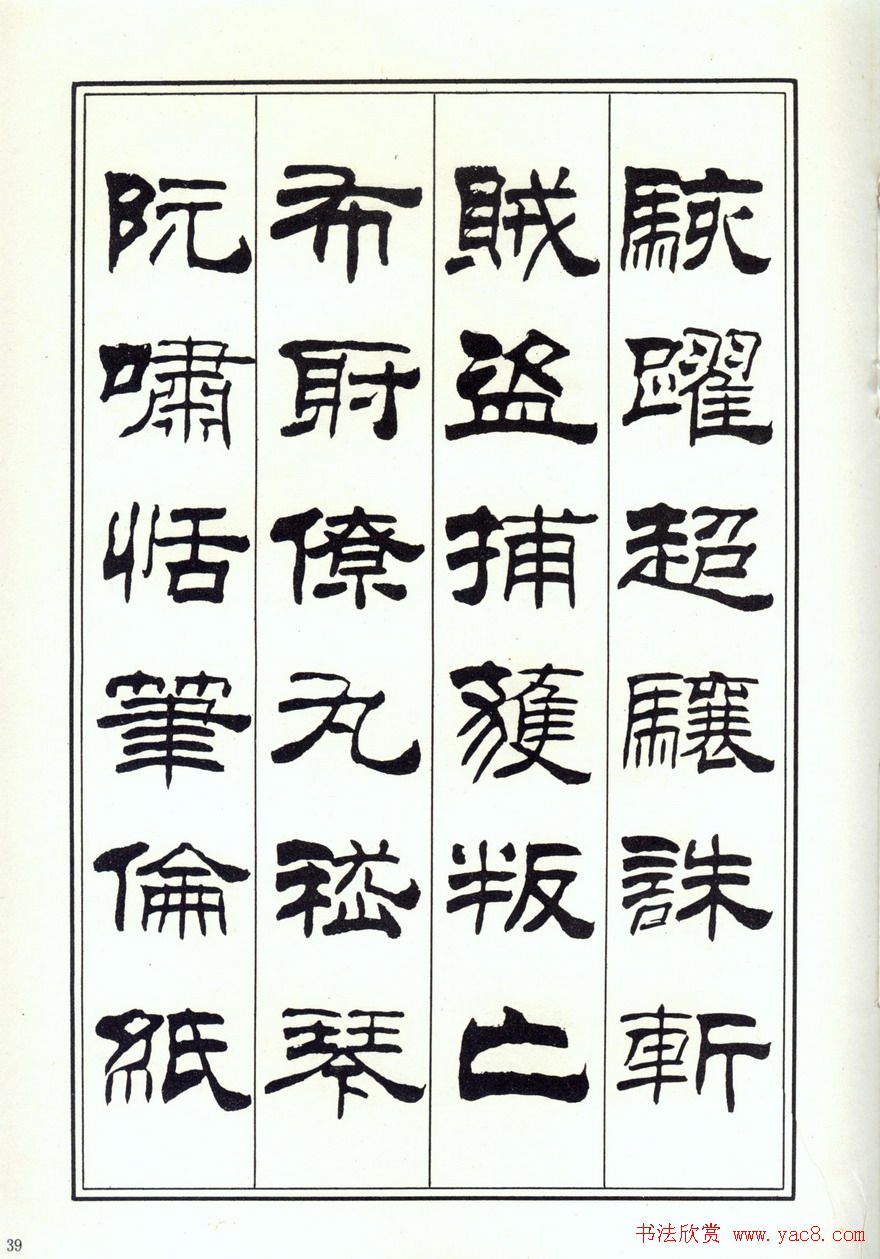 駭躍超驤誅斬
賊盜捕獲叛亡
布射僚丸嵇琴
阮嘯恬筆倫紙
39
书法欣赏 www.yac8.com